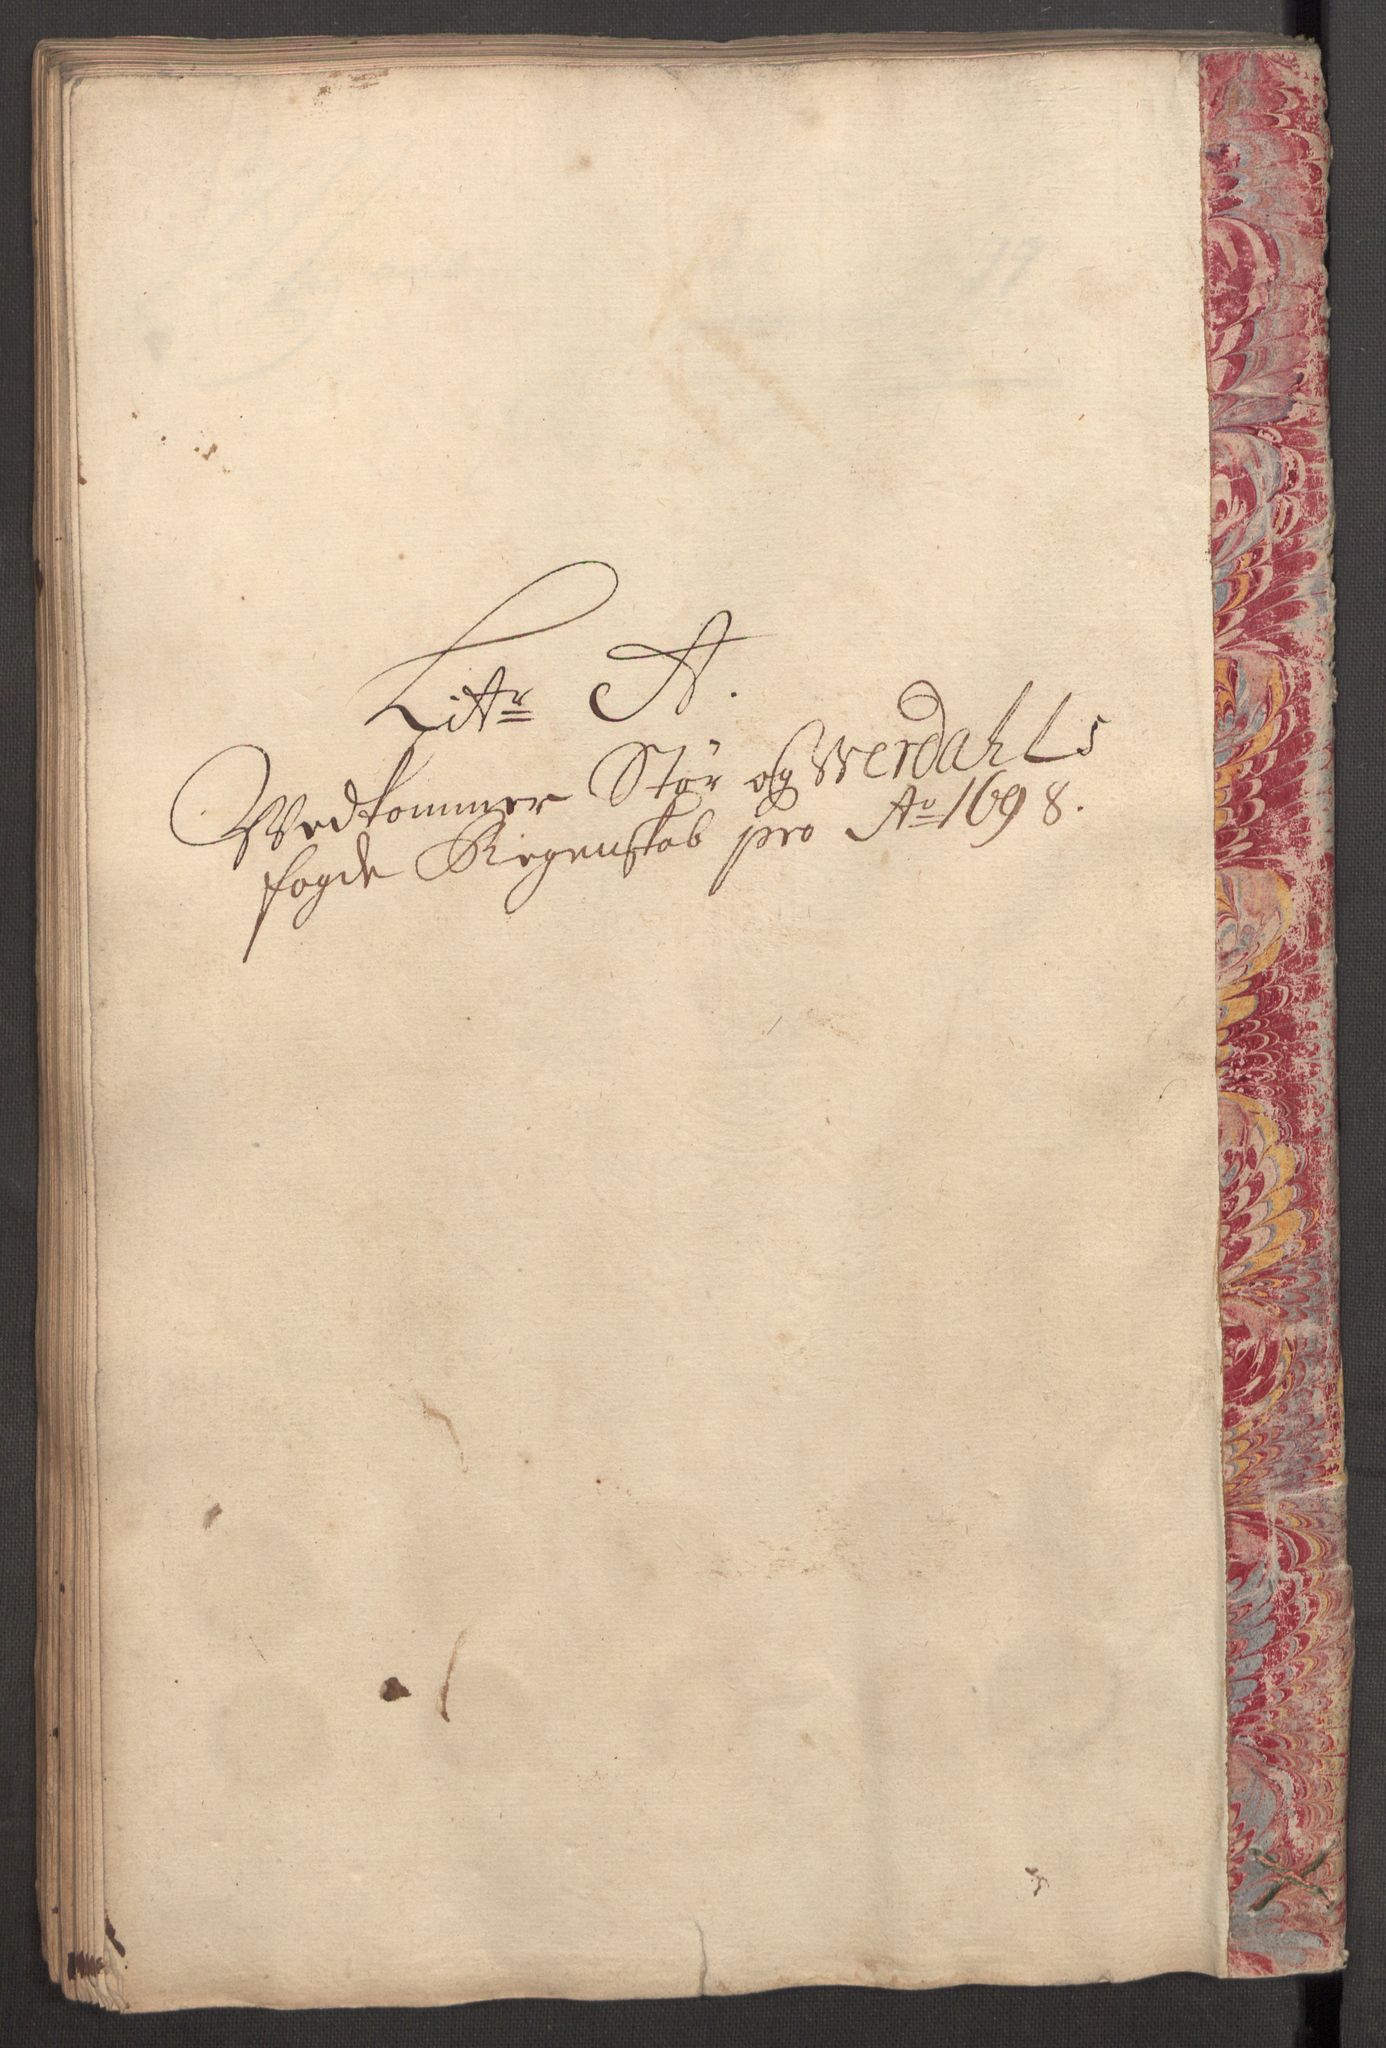 Litr A.
Vedkommer Stør og Werdahls
fogde Regenskab pro Ao 1698.